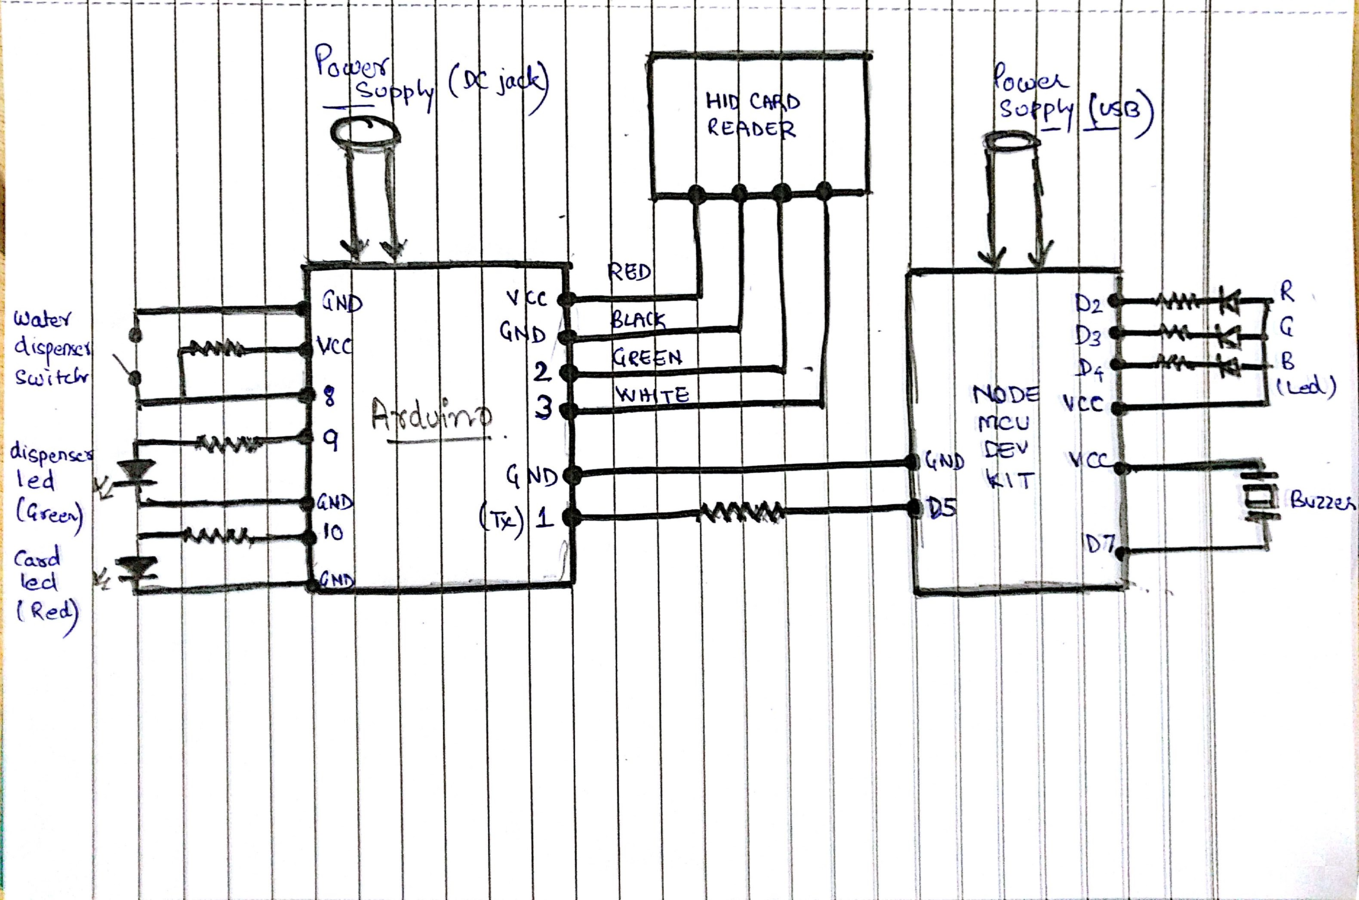 Power
Supply (DC jack)
HID CARD
READER
Power
Supply (USB)
Water
dispenser
Switch
dispenser
led
(Green)
Card
led
(Red)
GND
VCC
8
9
GND
10
GND
Arduino
VCC
GND
2
3
GND
(Tx) 1
RED
BLACK
GREEN
WHITE
GND
D5
NODE
MCU
DEV
KIT
D2
D3
D4
VCC
VCC
D7
R
G
B
(Led)
Buzzer